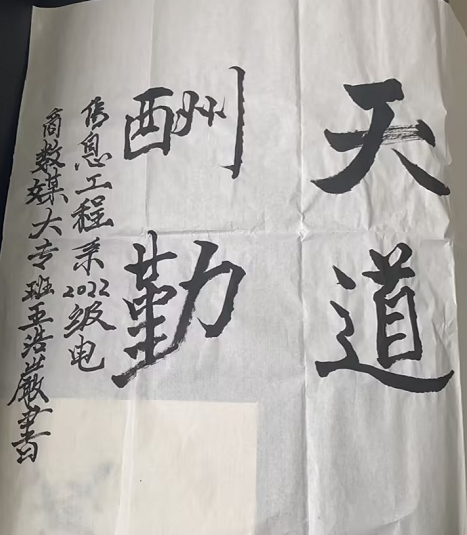 天道
酬勤
信息工程系2022级电
商数媒大专班王浩严书